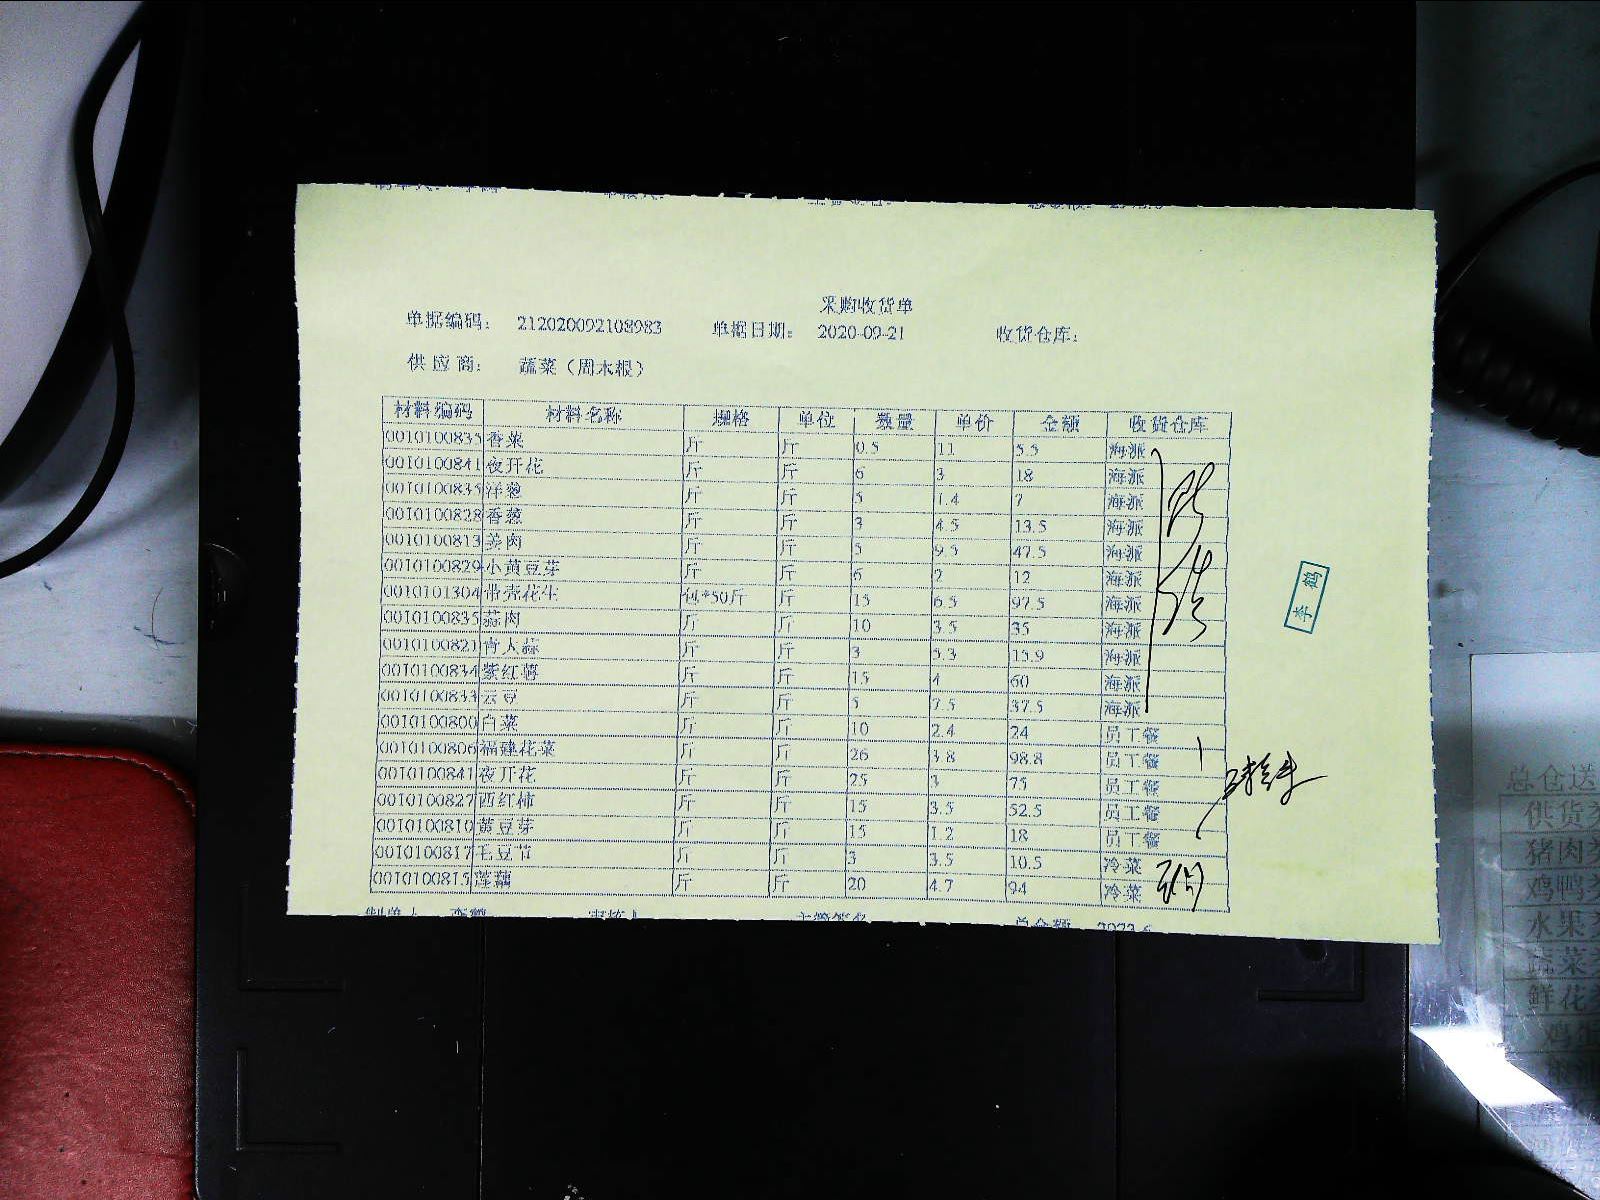 采购收货单
单据编码： 212020092108983 单据日期： 2020-09-21 收货仓库：
供应商： 蔬菜（周木根）
材料编码 材料名称 规格 单位 数量 单价 金额 收货仓库
0010100835 香菜 斤 斤 0.5 11 5.5 海派
0010100841 夜开花 斤 斤 6 3 18 海派
0010100835 洋葱 斤 斤 5 1.4 7 海派
0010100828 香葱 斤 斤 3 4.5 13.5 海派
0010100813 姜肉 斤 斤 5 9.5 47.5 海派
0010100829 小黄豆芽 斤 斤 6 2 12 海派
0010101304 带壳花生 包*50斤 斤 15 6.5 97.5 海派
0010100835 蒜肉 斤 斤 10 3.5 35 海派
0010100821 青大蒜 斤 斤 3 5.3 15.9 海派
0010100834 紫红薯 斤 斤 15 4 60 海派
0010100833 云豆 斤 斤 5 7.5 37.5 海派
0010100800 白菜 斤 斤 10 2.4 24 员工餐
0010100806 福建花菜 斤 斤 26 3.8 98.8 员工餐
0010100841 夜开花 斤 斤 25 3 75 员工餐
0010100827 西红柿 斤 斤 15 3.5 52.5 员工餐
0010100810 黄豆芽 斤 斤 15 1.2 18 员工餐
0010100817 毛豆节 斤 斤 3 3.5 10.5 冷菜
0010100815 莲藕 斤 斤 20 4.7 94 冷菜
李鹤
总仓送
供货
猪肉
鸡鸭
水果
蔬菜
鲜花